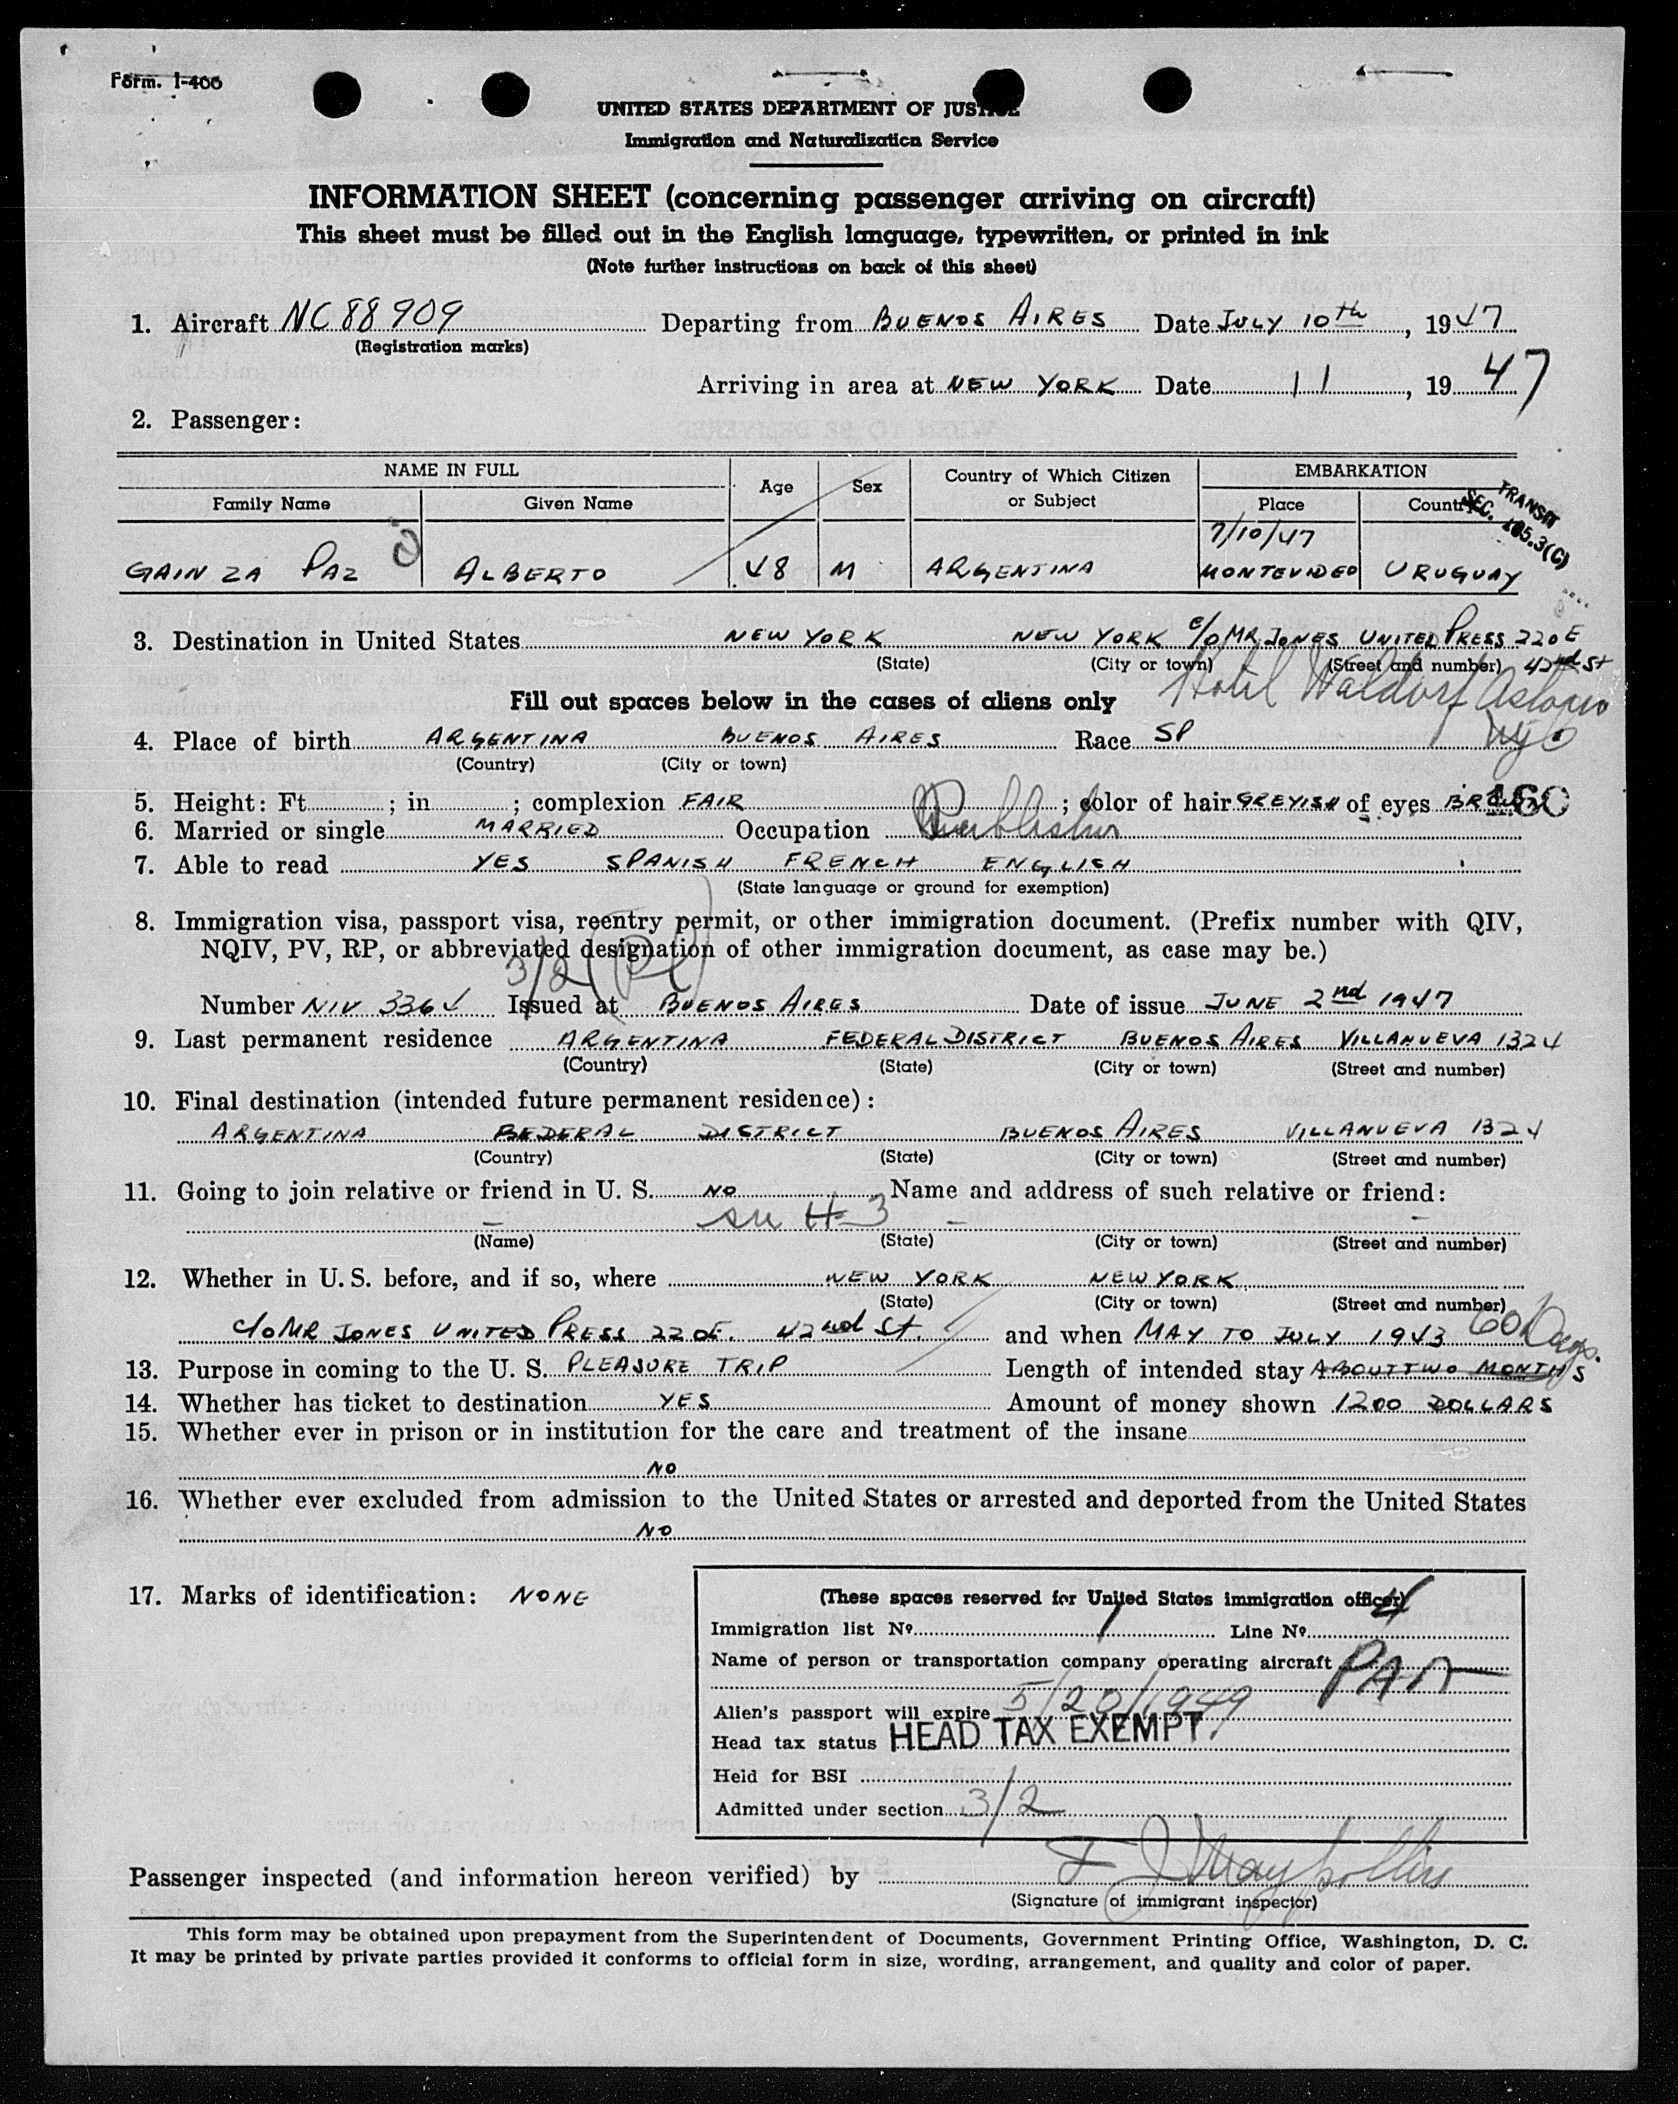 Form. I-466
UNITED STATES DEPARTMENT OF JUSTICE
Immigration and Naturalization Service
INFORMATION SHEET (concerning passenger arriving on aircraft)
This sheet must be filled out in the English language, typewritten, or printed in ink
(Note further instructions on back of this sheet)
1. Aircraft NC 88909 Departing from BUENOS AIRES Date JULY 10th, 1947
(Registration marks)
Arriving in area at NEW YORK Date 11, 1947
2. Passenger:
NAME IN FULL Age Sex Country of Which Citizen or Subject EMBARKATION
Family Name Given Name Place Country
TRANSIT
SEC. 105.3(C)
7/10/47
GAINZA PAZ ALBERTO 48 M ARGENTINA MONTEVIDEO URUGUAY
3. Destination in United States NEW YORK NEW YORK c/o MR JONES UNITED PRESS 220 E
(State) (City or town) (Street and number) 42nd St
Hotel Waldorf Astoria
Fill out spaces below in the cases of aliens only
NYC
4. Place of birth ARGENTINA BUENOS AIRES Race SP
(Country) (City or town)
5. Height: Ft ; in ; complexion FAIR ; color of hair GREYISH of eyes BROWN
160
6. Married or single MARRIED Occupation Publisher
7. Able to read YES SPANISH FRENCH ENGLISH
(State language or ground for exemption)
8. Immigration visa, passport visa, reentry permit, or other immigration document. (Prefix number with QIV,
NQIV, PV, RP, or abbreviated designation of other immigration document, as case may be.)
3/2
Number NIV 3364 Issued at BUENOS AIRES Date of issue JUNE 2nd 1947
9. Last permanent residence ARGENTINA FEDERAL DISTRICT BUENOS AIRES VILLANUEVA 1324
(Country) (State) (City or town) (Street and number)
10. Final destination (intended future permanent residence):
ARGENTINA FEDERAL DISTRICT BUENOS AIRES VILLANUEVA 1324
(Country) (State) (City or town) (Street and number)
11. Going to join relative or friend in U. S. NO Name and address of such relative or friend:
— see #3 — —
(Name) (State) (City or town) (Street and number)
12. Whether in U. S. before, and if so, where NEW YORK NEW YORK
(State) (City or town) (Street and number)
c/o MR JONES UNITED PRESS 220 E. 42nd St. and when MAY TO JULY 1943
60 Days.
13. Purpose in coming to the U. S. PLEASURE TRIP Length of intended stay ABOUT TWO MONTHS
14. Whether has ticket to destination YES Amount of money shown 1200 DOLLARS
15. Whether ever in prison or in institution for the care and treatment of the insane
NO
16. Whether ever excluded from admission to the United States or arrested and deported from the United States
NO
17. Marks of identification: NONE
(These spaces reserved for United States immigration officer)
Immigration list No. 1 Line No. 4
Name of person or transportation company operating aircraft PAA
Alien's passport will expire 5/20/1949
Head tax status HEAD TAX EXEMPT.
Held for BSI
Admitted under section 3/2
Passenger inspected (and information hereon verified) by
(Signature of immigrant inspector)
This form may be obtained upon prepayment from the Superintendent of Documents, Government Printing Office, Washington, D. C.
It may be printed by private parties provided it conforms to official form in size, wording, arrangement, and quality and color of paper.